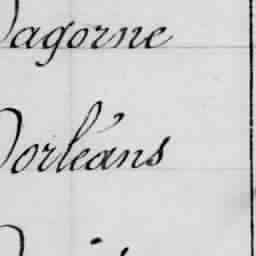 Dagorne
Dorléans